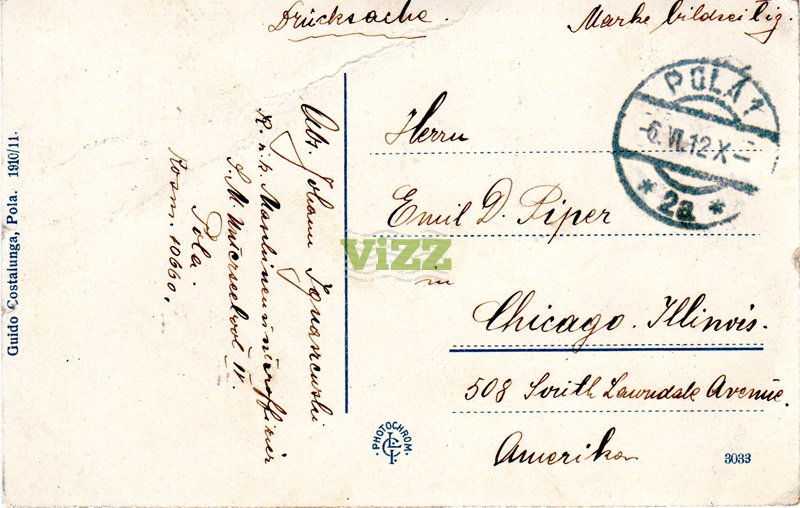 Drucksache.
Marke bildseitig.
POLA 1
-6.VI.12.X-
* 2a *
Herrn
Emil D. Piper
in
Chicago. Illinois.
508 South Lawndale Avenue.
Amerika
Abs. Johann
K. u. k. Marineunteroffizier
S. M. Unterseeboot IV.
Pola.
Kosm. 10660.
Guido Costalunga, Pola. 1910/11.
PHOTOCHROM.
3033
ViZZ